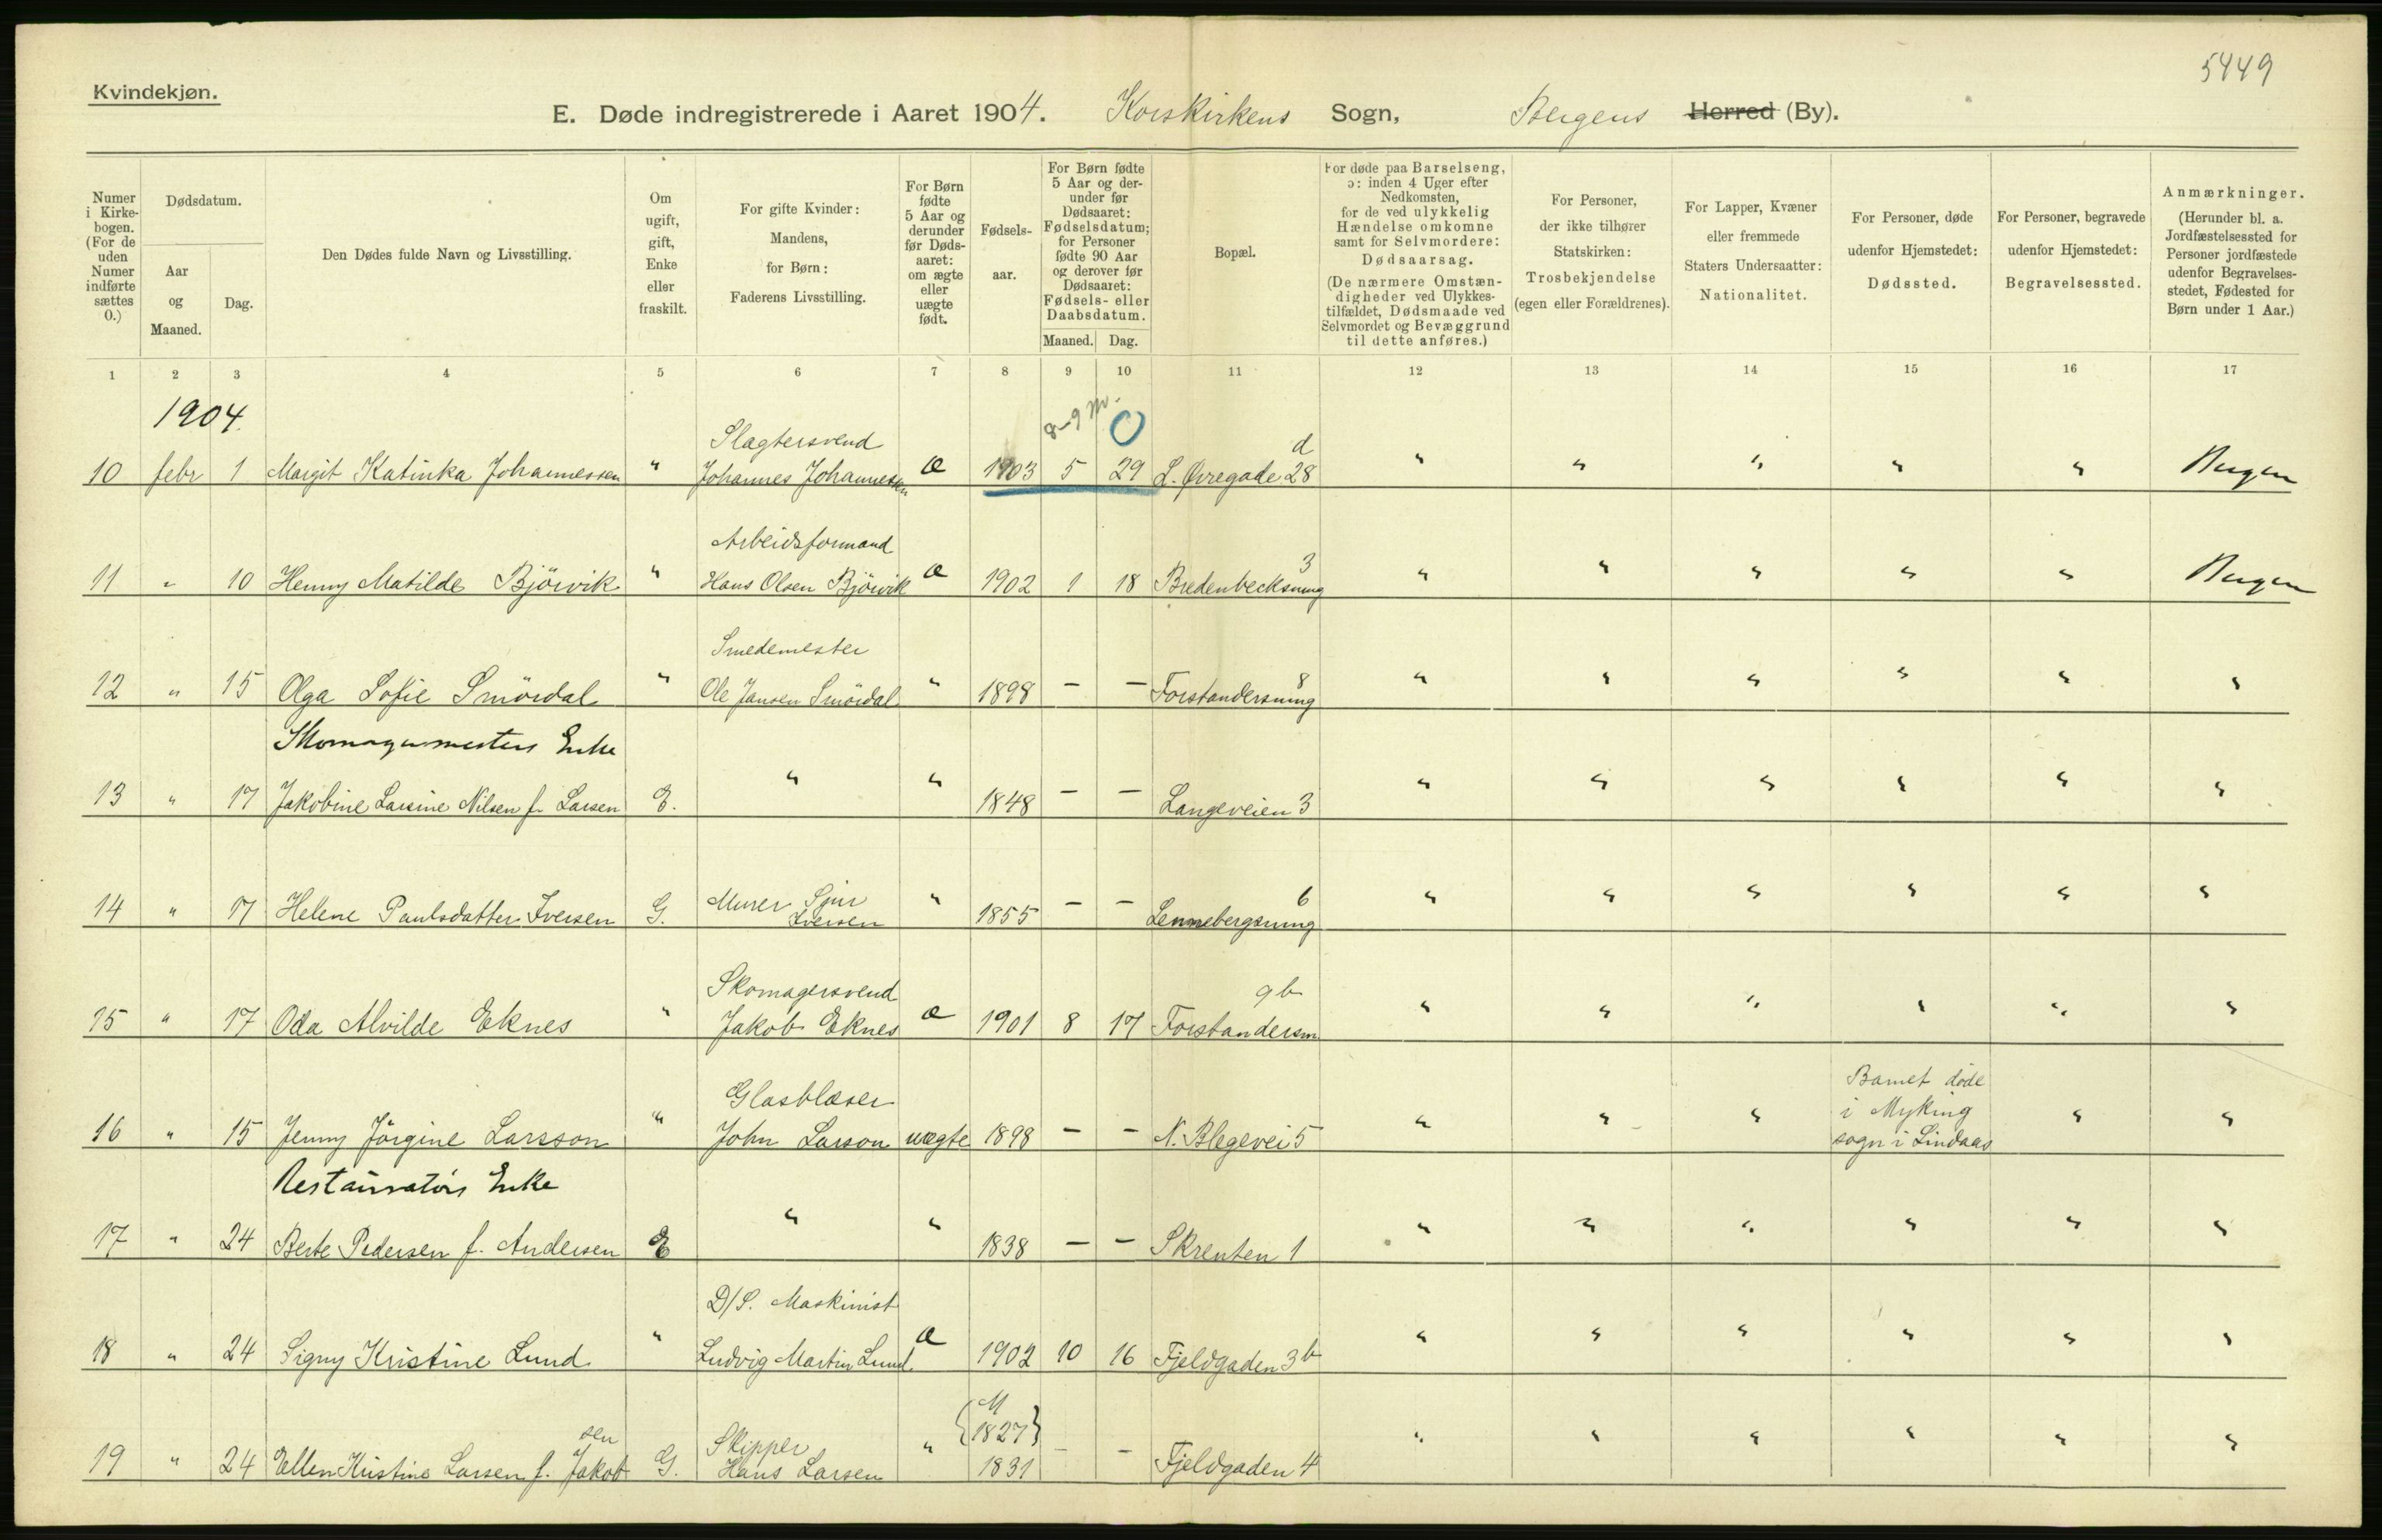 5449
Kvindekjøn.
E. Døde indregistrerede i Aaret 1904. Korskirkens Sogn, Bergens Herred (By).
Numer i Kirkebogen. (For de uden Numer indførte sættes 0.)
Dødsdatum.
Aar og Maaned.
Dag.
Den Dødes fulde Navn og Livsstilling.
Om ugift, gift, Enke eller fraskilt.
For gifte Kvinder: Mandens, for Børn: Faderens Livsstilling.
For Børn fødte 5 Aar og derunder før Dødsaaret: om ægte eller uægte født.
Fødselsaar.
For Børn fødte 5 Aar og derunder før Dødsaaret: Fødselsdatum; for Personer fødte 90 Aar og derover før Dødsaaret: Fødsels- eller Daabsdatum.
Maaned. Dag.
Bopæl.
For døde paa Barselseng, ɔ: inden 4 Uger efter Nedkomsten, for de ved ulykkelig Hændelse omkomne samt for Selvmordere: Dødsaarsag. (De nærmere Omstændigheder ved Ulykkestilfældet, Dødsmaade ved Selvmordet og Bevæggrund til dette anføres.)
For Personer, der ikke tilhører Statskirken: Trosbekjendelse (egen eller Forældrenes).
For Lapper, Kvæner eller fremmede Staters Undersaatter: Nationalitet.
For Personer, døde udenfor Hjemstedet: Dødssted.
For Personer, begravede udenfor Hjemstedet: Begravelsessted.
Anmærkninger. (Herunder bl. a. Jordfæstelsessted for Personer jordfæstede udenfor Begravelsesstedet, Fødested for Børn under 1 Aar.)
1 2 3 4 5 6 7 8 9 10 11 12 13 14 15 16 17
1904.
8-9 m. 0
Slagtersvend d
10 febr 1 Margit Katinka Johannessen " Johannes Johannessen æ 1903 5 29 L. Øvregade 28 " " " " " Bergen
Arbeidsformand 3
11 " 10 Henny Matilde Björvik " Hans Olsen Björvik æ 1902 1 18 Bredenbecksmug " " " " " Bergen
Smedemester 8
12 " 15 Olga Sofie Smördal " Ole Jansen Smördal " 1898 - - Forstandersmug " " " " " "
Skomagermesters Enke
13 " 17 Jakobine Larsine Nilsen f. Larsen E. " " 1848 - - Langeveien 3 " " " " " "
Murer Sjur 6
14 " 17 Helene Paulsdatter Iversen G. Iversen " 1855 - - Lennebergsmug " " " " " "
Skomagersvend 9b
15 " 17 Oda Alvilde Eknes " Jakob Eknes æ 1901 8 17 Forstandersm " " " " " "
Glasblæser Barnet døde
i Myking
16 " 15 Jenny Jörgine Larsson " John Larson uægte 1898 - - N. Blegevei 5 " " " sogn i Lindaas " "
Restauratörs Enke
17 " 24 Berte Pedersen f. Andersen E " " 1838 - - Skrenten 1 " " " " " "
D/S. Maskinist
18 " 24 Signy Kristine Lund " Ludvig Martin Lund æ 1902 10 16 Fjeldgaden 3b " " " " " "
M
sen Skipper {1827}
19 " 24 Ellen Kristine Larsen f. Jakob G. Hans Larsen " 1831 - - Fjeldgaden 4 " " " " " "